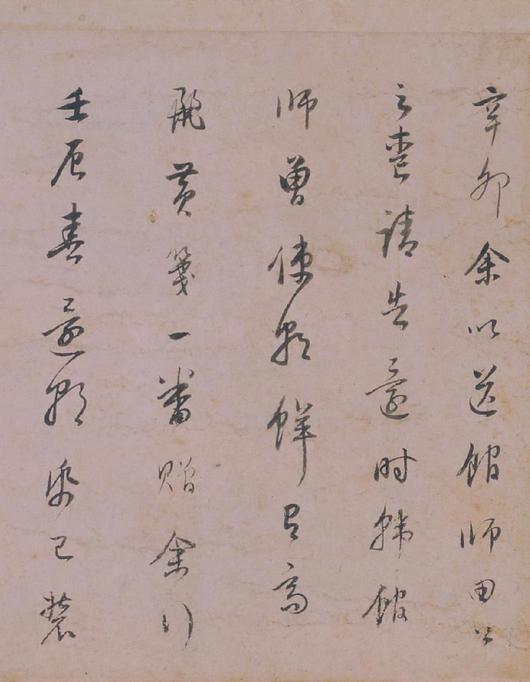 辛卯余以送館師田公
之喪請告還時韓館
師曾使朝鮮以高
麗黃箋一番贈余行
壬辰春還朝業已裝